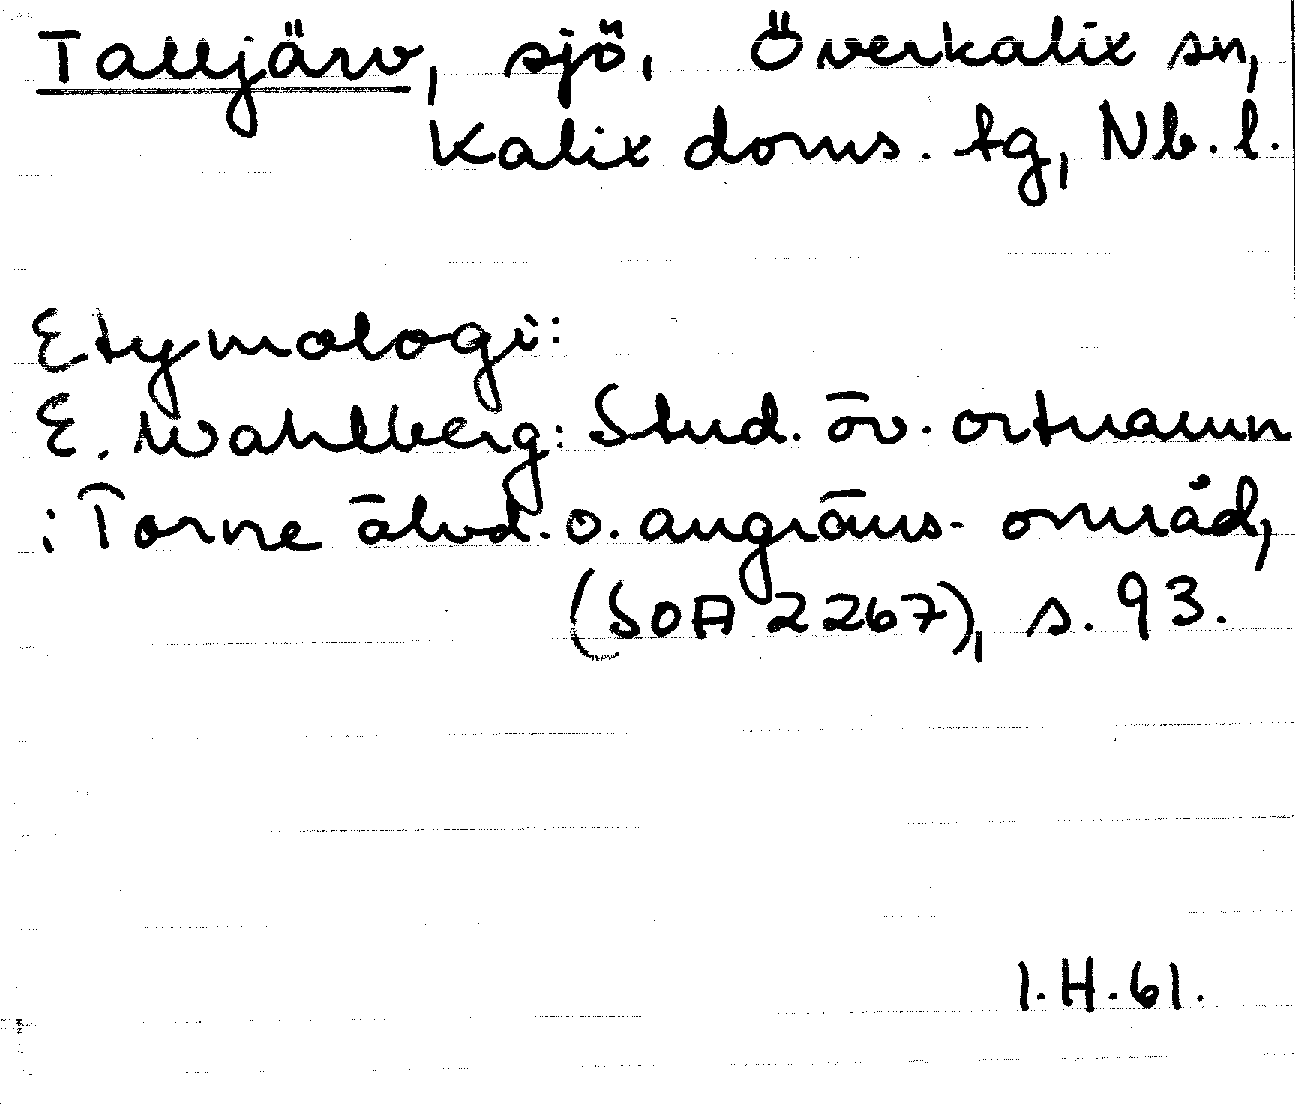 Talljärv, sjö, Överkalix sn,
Kalix doms. tg, Nb. l.
Etymologi:
E. Wahlberg: Stud. öv. ortnamn
i Torne älvd. o. angräns. område,
(SOA 2267), s. 93.
I.H.61.